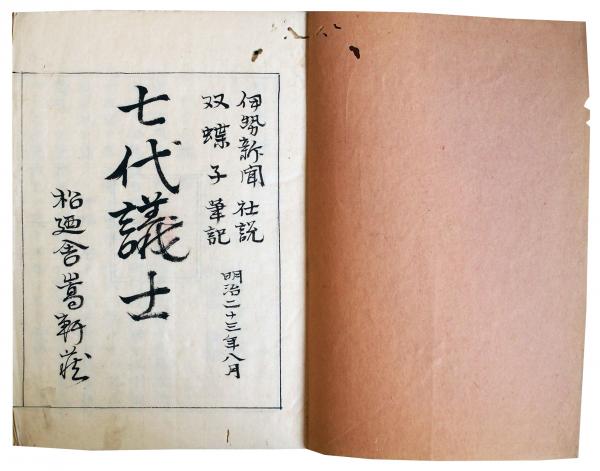 伊勢新聞社説
双蝶子筆記
明治二十三年八月
七代議士
松廼舎嵩軒蔵